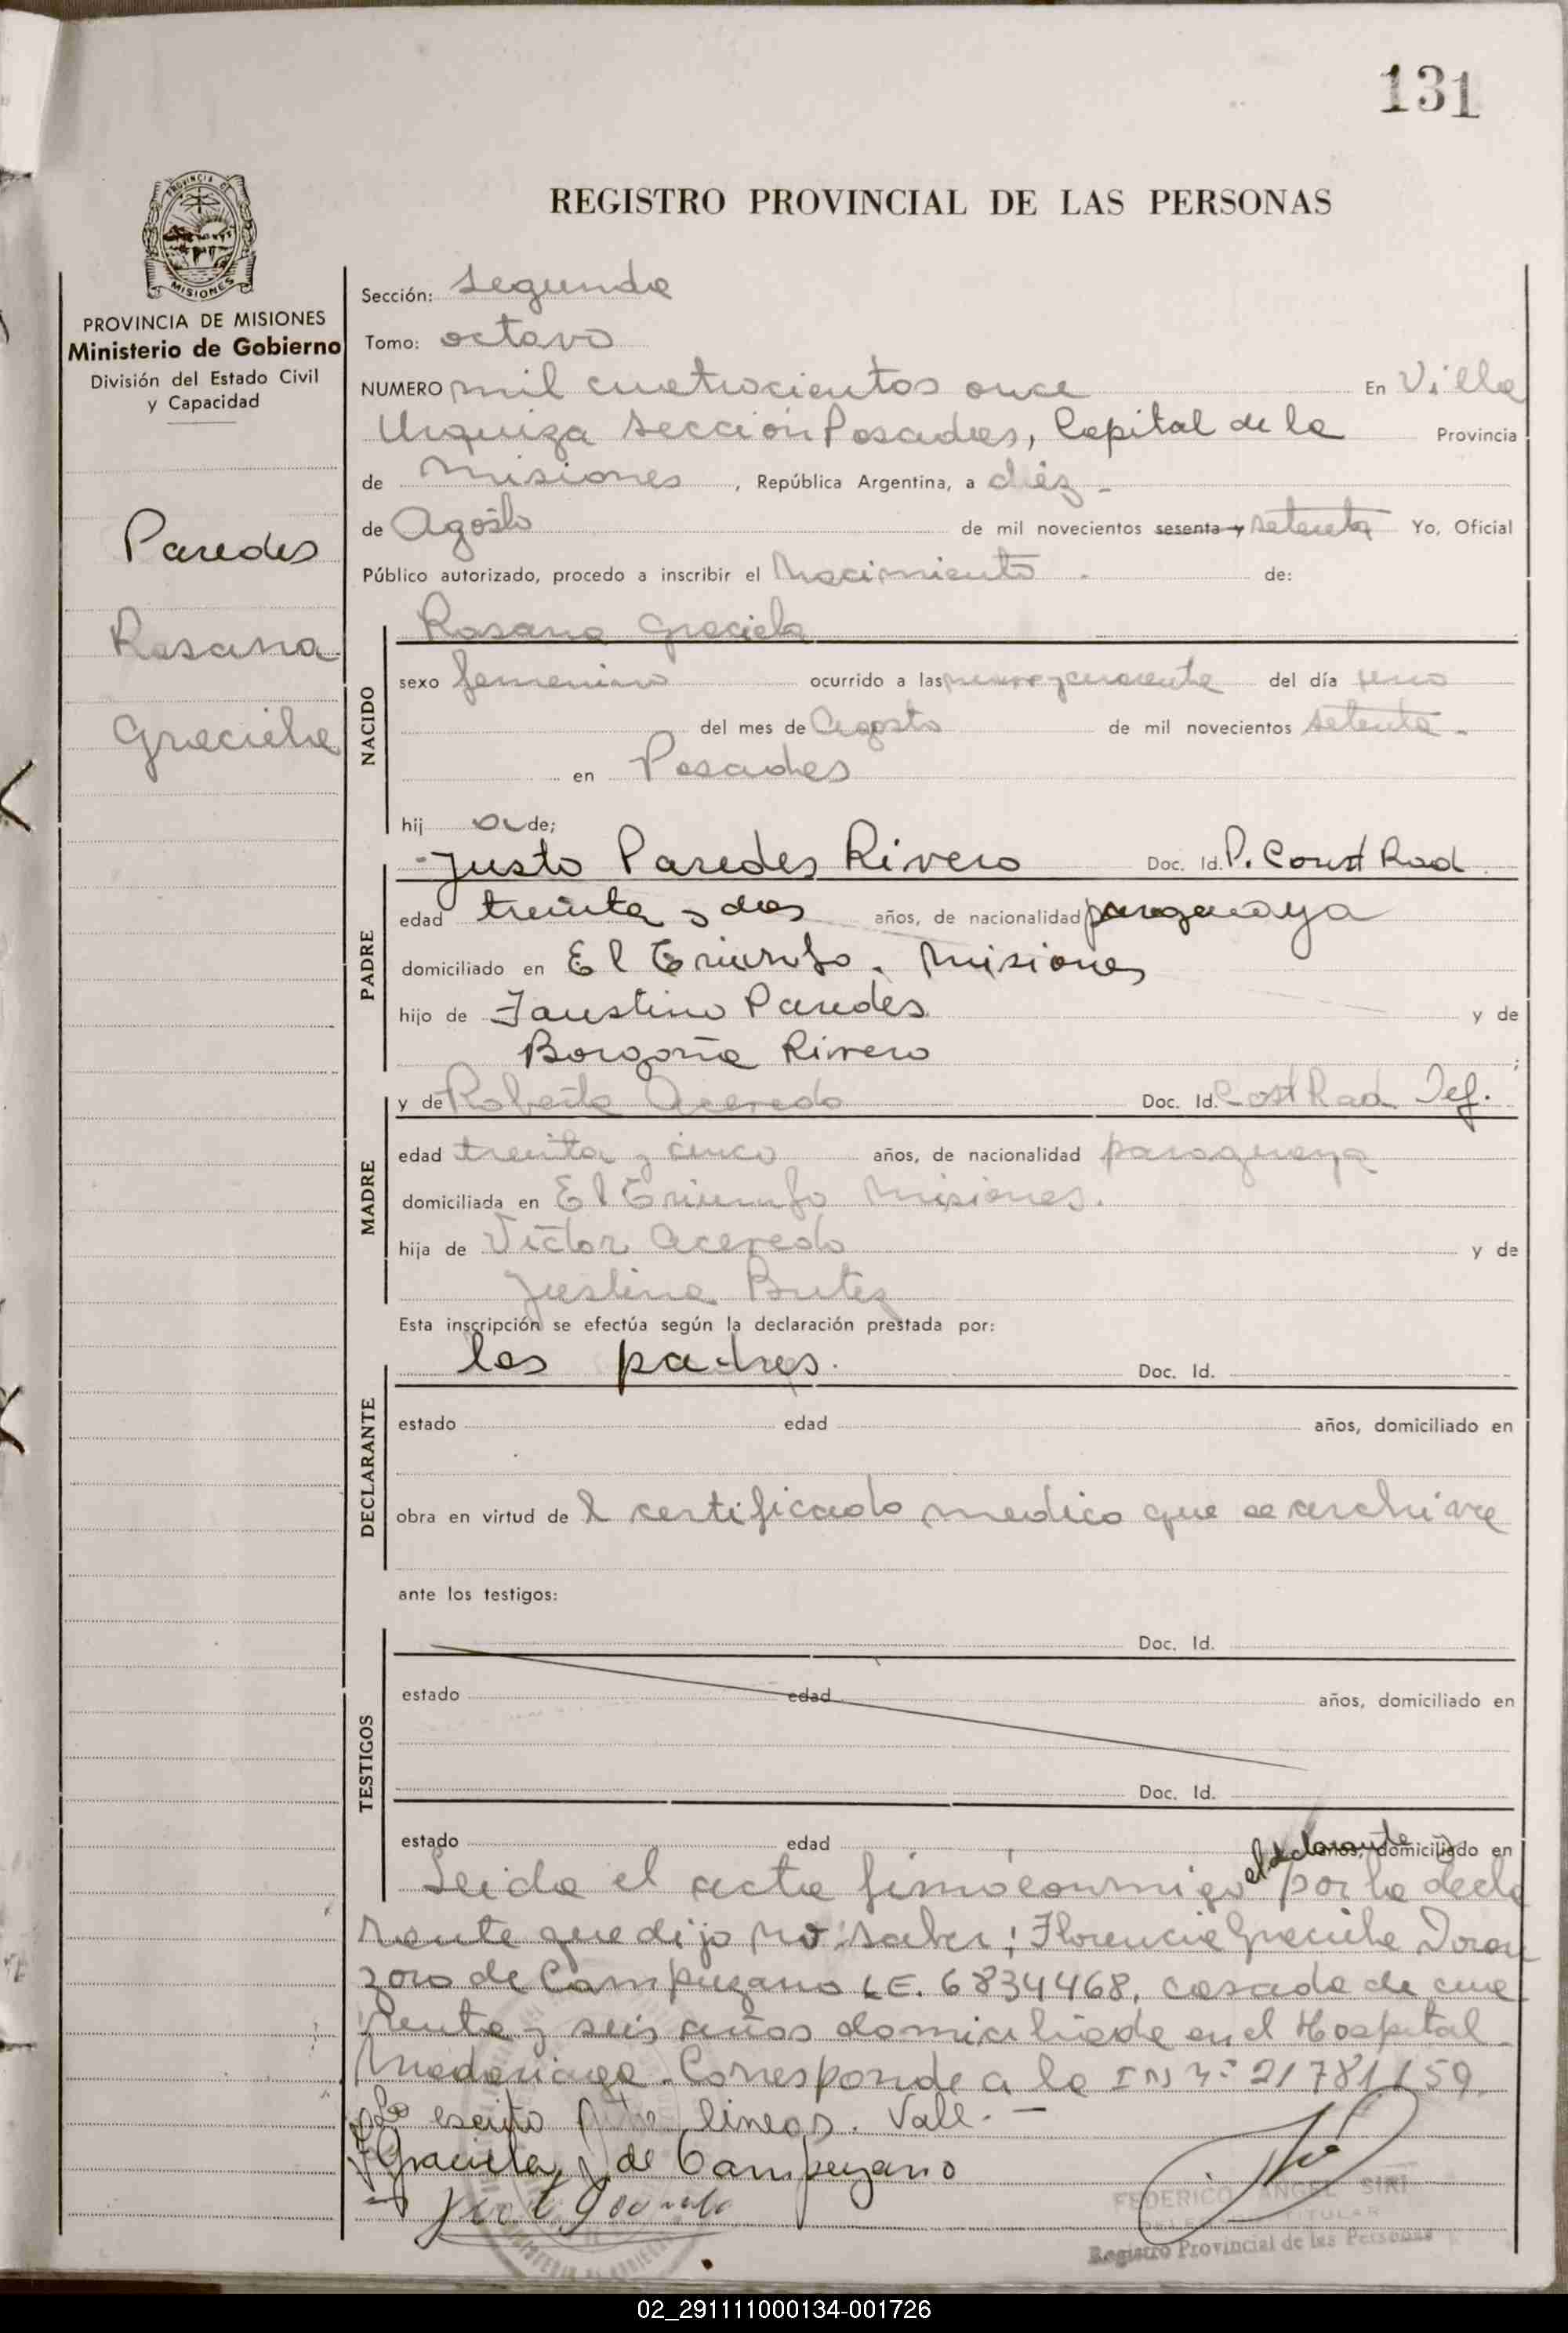 131
REGISTRO PROVINCIAL DE LAS PERSONAS
PROVINCIA DE MISIONES
PROVINCIA DE MISIONES
Ministerio de Gobierno
División del Estado Civil
y Capacidad
Paredes
Rosana
Graciela
Sección: segunda
Tomo: octavo
NUMERO mil cuatrocientos once En Villa
Urquiza sección Posadas, Capital de la Provincia
de Misiones, República Argentina, a diéz -
de Agosto de mil novecientos sesenta y setenta Yo, Oficial
Público autorizado, procedo a inscribir el Nacimiento - de:
NACIDO
Rosana Graciela
sexo femenino ocurrido a las nueve y cuarenta del día uno
del mes de Agosto de mil novecientos setenta -
en Posadas
hij a de;
PADRE
Justo Paredes Rivero Doc. Id. P. Const Rad
edad treinta y dos años, de nacionalidad paraguaya
domiciliado en El Triunfo. Misiones
hijo de Faustino Paredes y de
Borgoña Rivero ;
MADRE
y de Roberta Acevedo Doc. Id. Cost Rad Def.
edad treinta y cinco años, de nacionalidad paraguaya
domiciliada en El Triunfo Misiones.
hija de Victor Acevedo y de
Justina Britez
Esta inscripción se efectúa según la declaración prestada por:
DECLARANTE
los padres. Doc. Id.
estado edad años, domiciliado en
obra en virtud de l certificado medico que se archiva
ante los testigos:
TESTIGOS
Doc. Id.
estado edad años, domiciliado en
Doc. Id.
estado edad años, domiciliado en
el declarante y
Leida el acta firmó conmigo por la decla
rante que dijo no saber; Florencia Graciela
zoro de Campuzano LE. 6834468, casada de cua
renta y seis años domiciliada en el Hospital
Madariaga. Corresponde a la IN Nº 21781159.
Lo escrito lineas. Vale. -
Graciela J de Campuzano
FEDERICO ANGEL SIRI
DELEGADO TITULAR
Registro Provincial de las Personas
02_291111000134-001726